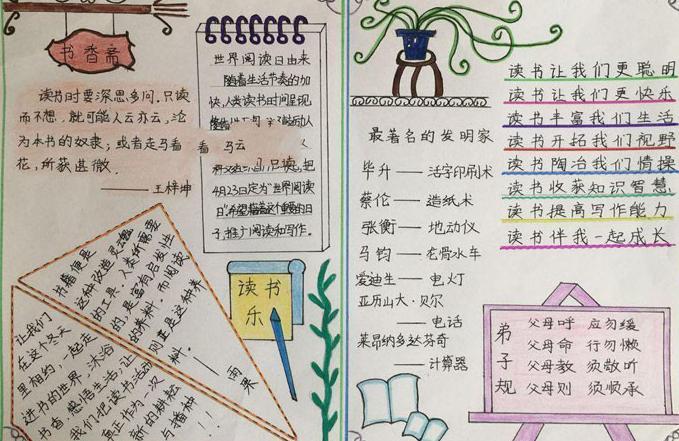 书香斋
读书时要深思多问，只读
而不想，就可能人云亦云，沦
为本书的奴隶；或者走马看 看 马云
花，所获甚微。
——王梓坤
世界阅读日由来
随着生活节奏的加
快，人类读书时间呈现
只读，把
4月23日定为“世界阅读
日”希望借着这个重要的日
子，推广阅读和写作。
书籍便是
这种改造灵魂
的工具。人类所需要
的，是富有启发性
的养料。而阅读，
则正是这种养
料。
——雨果
让我们
在这个冬天
里相约，一起走
进书的世界，沐浴
书香，感悟生活，让
我们把读书活动
真正作为一次
新的耕耘
与播种！
读书
乐
最著名的发明家
毕升——活字印刷术
蔡伦——造纸术
张衡——地动仪
马钧——龙骨水车
爱迪生——电灯
亚历山大·贝尔
——电话
莱昂纳多达芬奇
——计算器
读书让我们更聪明
读书让我们更快乐
读书丰富我们生活
读书开拓我们视野
读书陶冶我们情操
读书收获知识智慧
读书提高写作能力
读书伴我一起成长
弟子规
父母呼 应勿缓
父母命 行勿懒
父母教 须敬听
父母则 须顺承